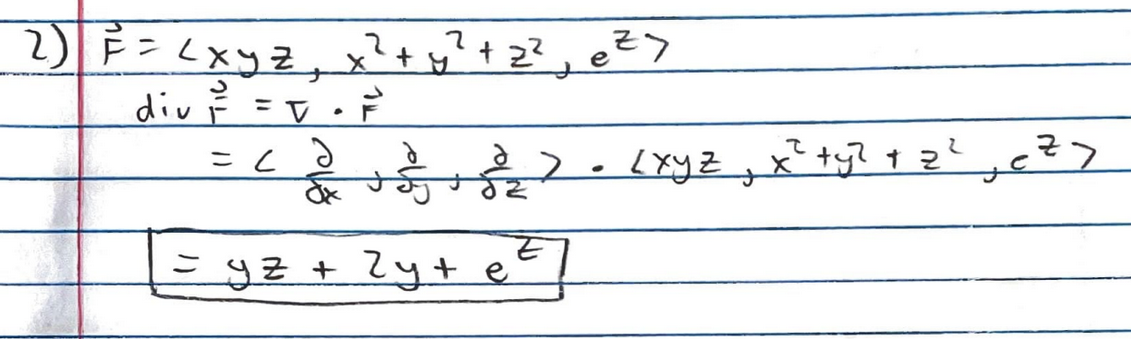 2) F⃗ = <xyz, x²+y²+z², e^z>
div F⃗ = ∇ · F⃗
= < ∂/∂x, ∂/∂y, ∂/∂z > · <xyz, x²+y²+z², e^z>
= yz + 2y + e^z